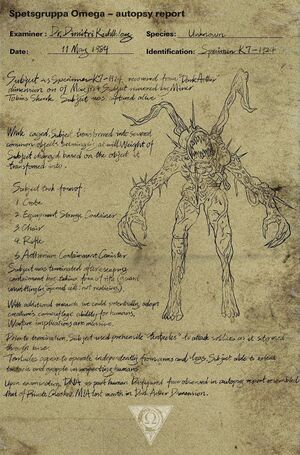 Spetsgruppa Omega – autopsy report
Examiner: Dr. Dimitri
Species: Unknown
Date: 11 May 1984
Identification: Specimen K7-1124
Subject as Specimen K7-1124, recovered from "Dark Aether"
dimension on of
Tobias Shunk. Subject was captured alive.
While caged, Subject transformed into several
common objects seemingly at will. Weight of
Subject changed based on the object it
transformed into.
Subject took form of
1 Crate
2 Equipment Storage Container
3 Chair
4. Rifle
5. Aetherium Containment Canister
Subject was terminated after escaping
containment by taking form of rifle (guard
unwittingly opened cell: not realizing).
With additional research we could potentially adapt
creature's camouflage ability for humans.
Warfare implications are massive.
Prior to termination, Subject used prehensile "tentacles" to attack soldiers as it stormed
Tentacles appear to operate independently from arms and legs. Subject able to extend
tentacle and grapple unsuspecting humans.
Upon examination, DNA is part human. Disfigured face observed in autopsy report resembled
that of Private MIA last month in Dark Aether Dimension.
Ω